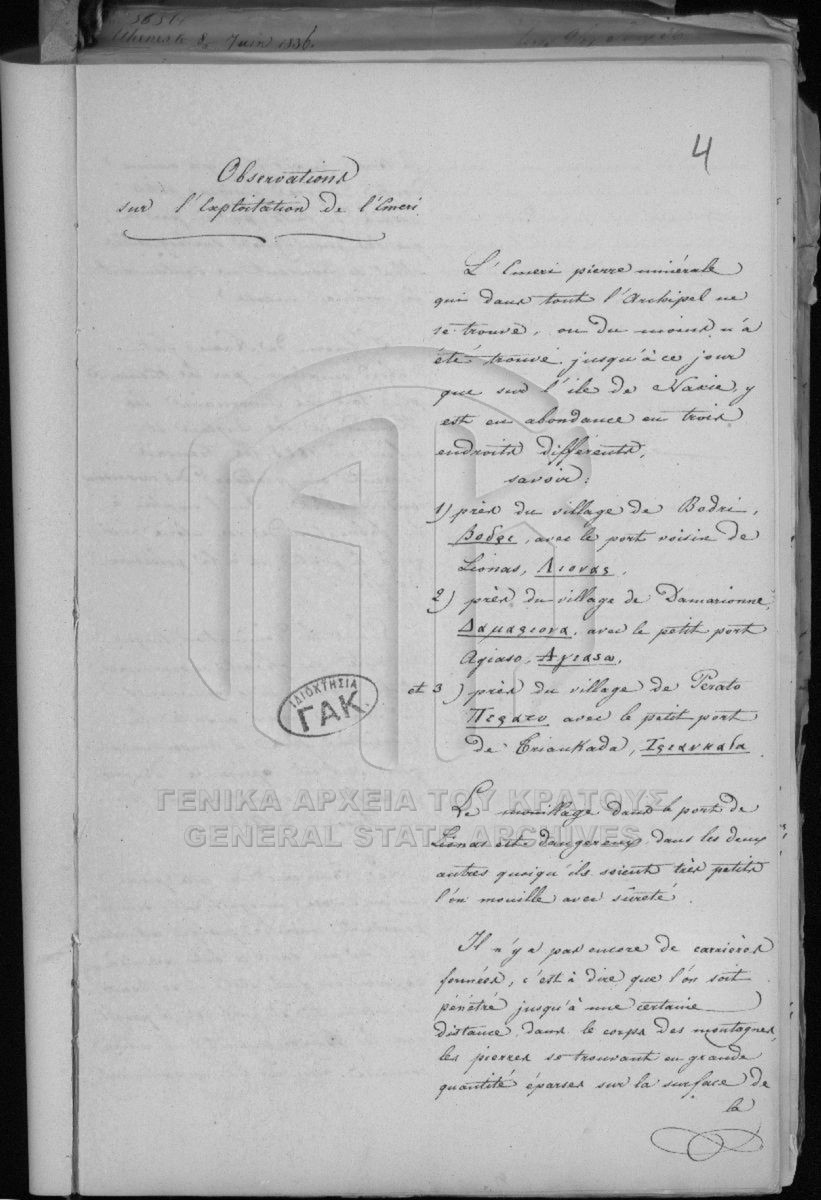 Juin 1836.
4
Observations
sur l'Exploitation de l'Emeri.
L'Emeri pierre minérale
qui dans tout l'Archipel ne
se trouve, ou du moins n'a
été trouvé jusqu'à ce jour
que sur l'ile de Naxie, y
est en abondance en trois
endroits différents,
savoir:
1) près du village de Bodri,
Βοδρι, avec le port voisin de
Lionas, Λιονας,
2) près du village de Damarionne,
Δαμαριονα, avec le petit port
Agiaso, Αγιασω,
et 3) près du village de Perato
Περατο avec le petit port
de Triankada, Τριανκαδα
Le mouillage dans le port de
Lionas est dangereux, dans les deux
autres quoiqu'ils soient très petits
l'on mouille avec sûreté.
Il n'y a pas encore de carrières
formées, c'est à dire que l'on soit
pénétré jusqu'à une certaine
distance dans le corps des montagnes,
les pierres se trouvant en grande
quantité éparses sur la surface de
la
ΙΔΙΟΚΤΗΣΙΑ
ΓΑΚ.
ΓΕΝΙΚΑ ΑΡΧΕΙΑ ΤΟΥ ΚΡΑΤΟΥΣ
GENERAL STATE ARCHIVES